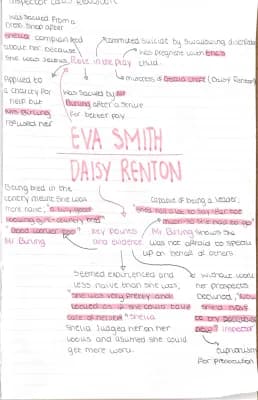 Inspector calls Revision
was sacked from a
Dress Shop after
Sheila complained
about her because
she was Jealous
Role in the play
commited Suicide by Swallowing disinfectant
was pregnant with Erics
child.
mistress of Gerald Croft (Daisy Renton)
Applied to
a charity for
help but
Mrs Birling
refused her
was Sacked by Mr
Birling after a Strike
for better pay
EVA SMITH
DAISY RENTON
Being bred in the
country meant she was
more naive, "a lively good
looking girl - country bred"
"Good worker too"
Mr Birling
Key Quotes
and evidence
capable of being a leader,
"She'd had a lot to say - far too
much so she had to go"
Mr Birling shows she
was not afraid to speak
up on behalf of others.
Seemed experienced and
less naive than she was,
"She was very pretty and
looked as if she could take
care of herself" Sheila
Sheila Judged her on her
looks and assumed she could
get more work.
without work
her prospects
decreased, "Now
she had to
try something
else" Inspector
euphemism
for prostitution